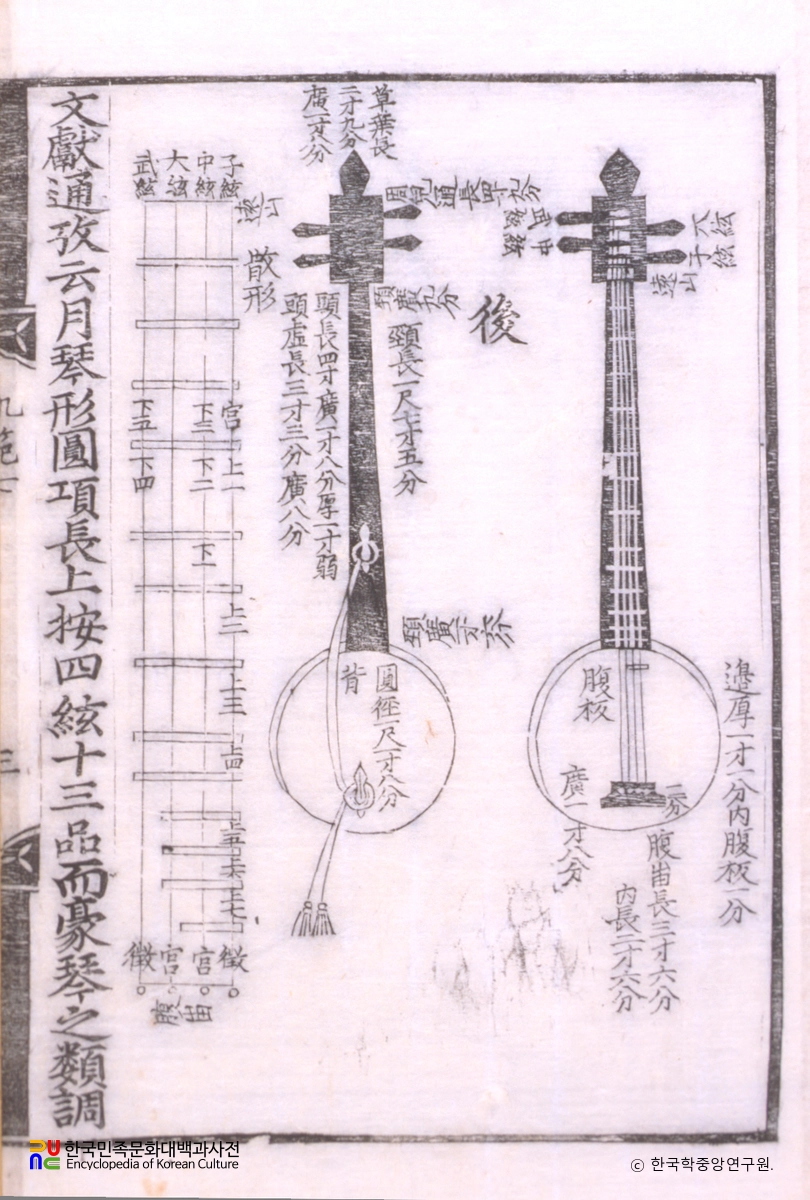 大絃
子絃
遠山
邊厚一寸一分內腹板一分
腹板
廣一寸八分
二分
腹畄長三寸六分
內長二寸六分
後
草葉長
二寸九分
廣一寸八分
頸長一尺七寸五分
頭長四寸廣一寸八分厚一寸弱
頭虛長三寸三分廣八分
頸廣九分
圓徑一尺一寸八分
背
散形
子絃
中絃
大絃
武絃
宮
上一
上二
上三
上四
上五
上六
上七
下三
下二
下一
下五
下四
徵
宮
宮
徵
腹畄
文獻通攷云月琴形圓項長上按四絃十三品而豪琴之類調
한국민족문화대백과사전
Encyclopedia of Korean Culture
ⓒ 한국학중앙연구원.